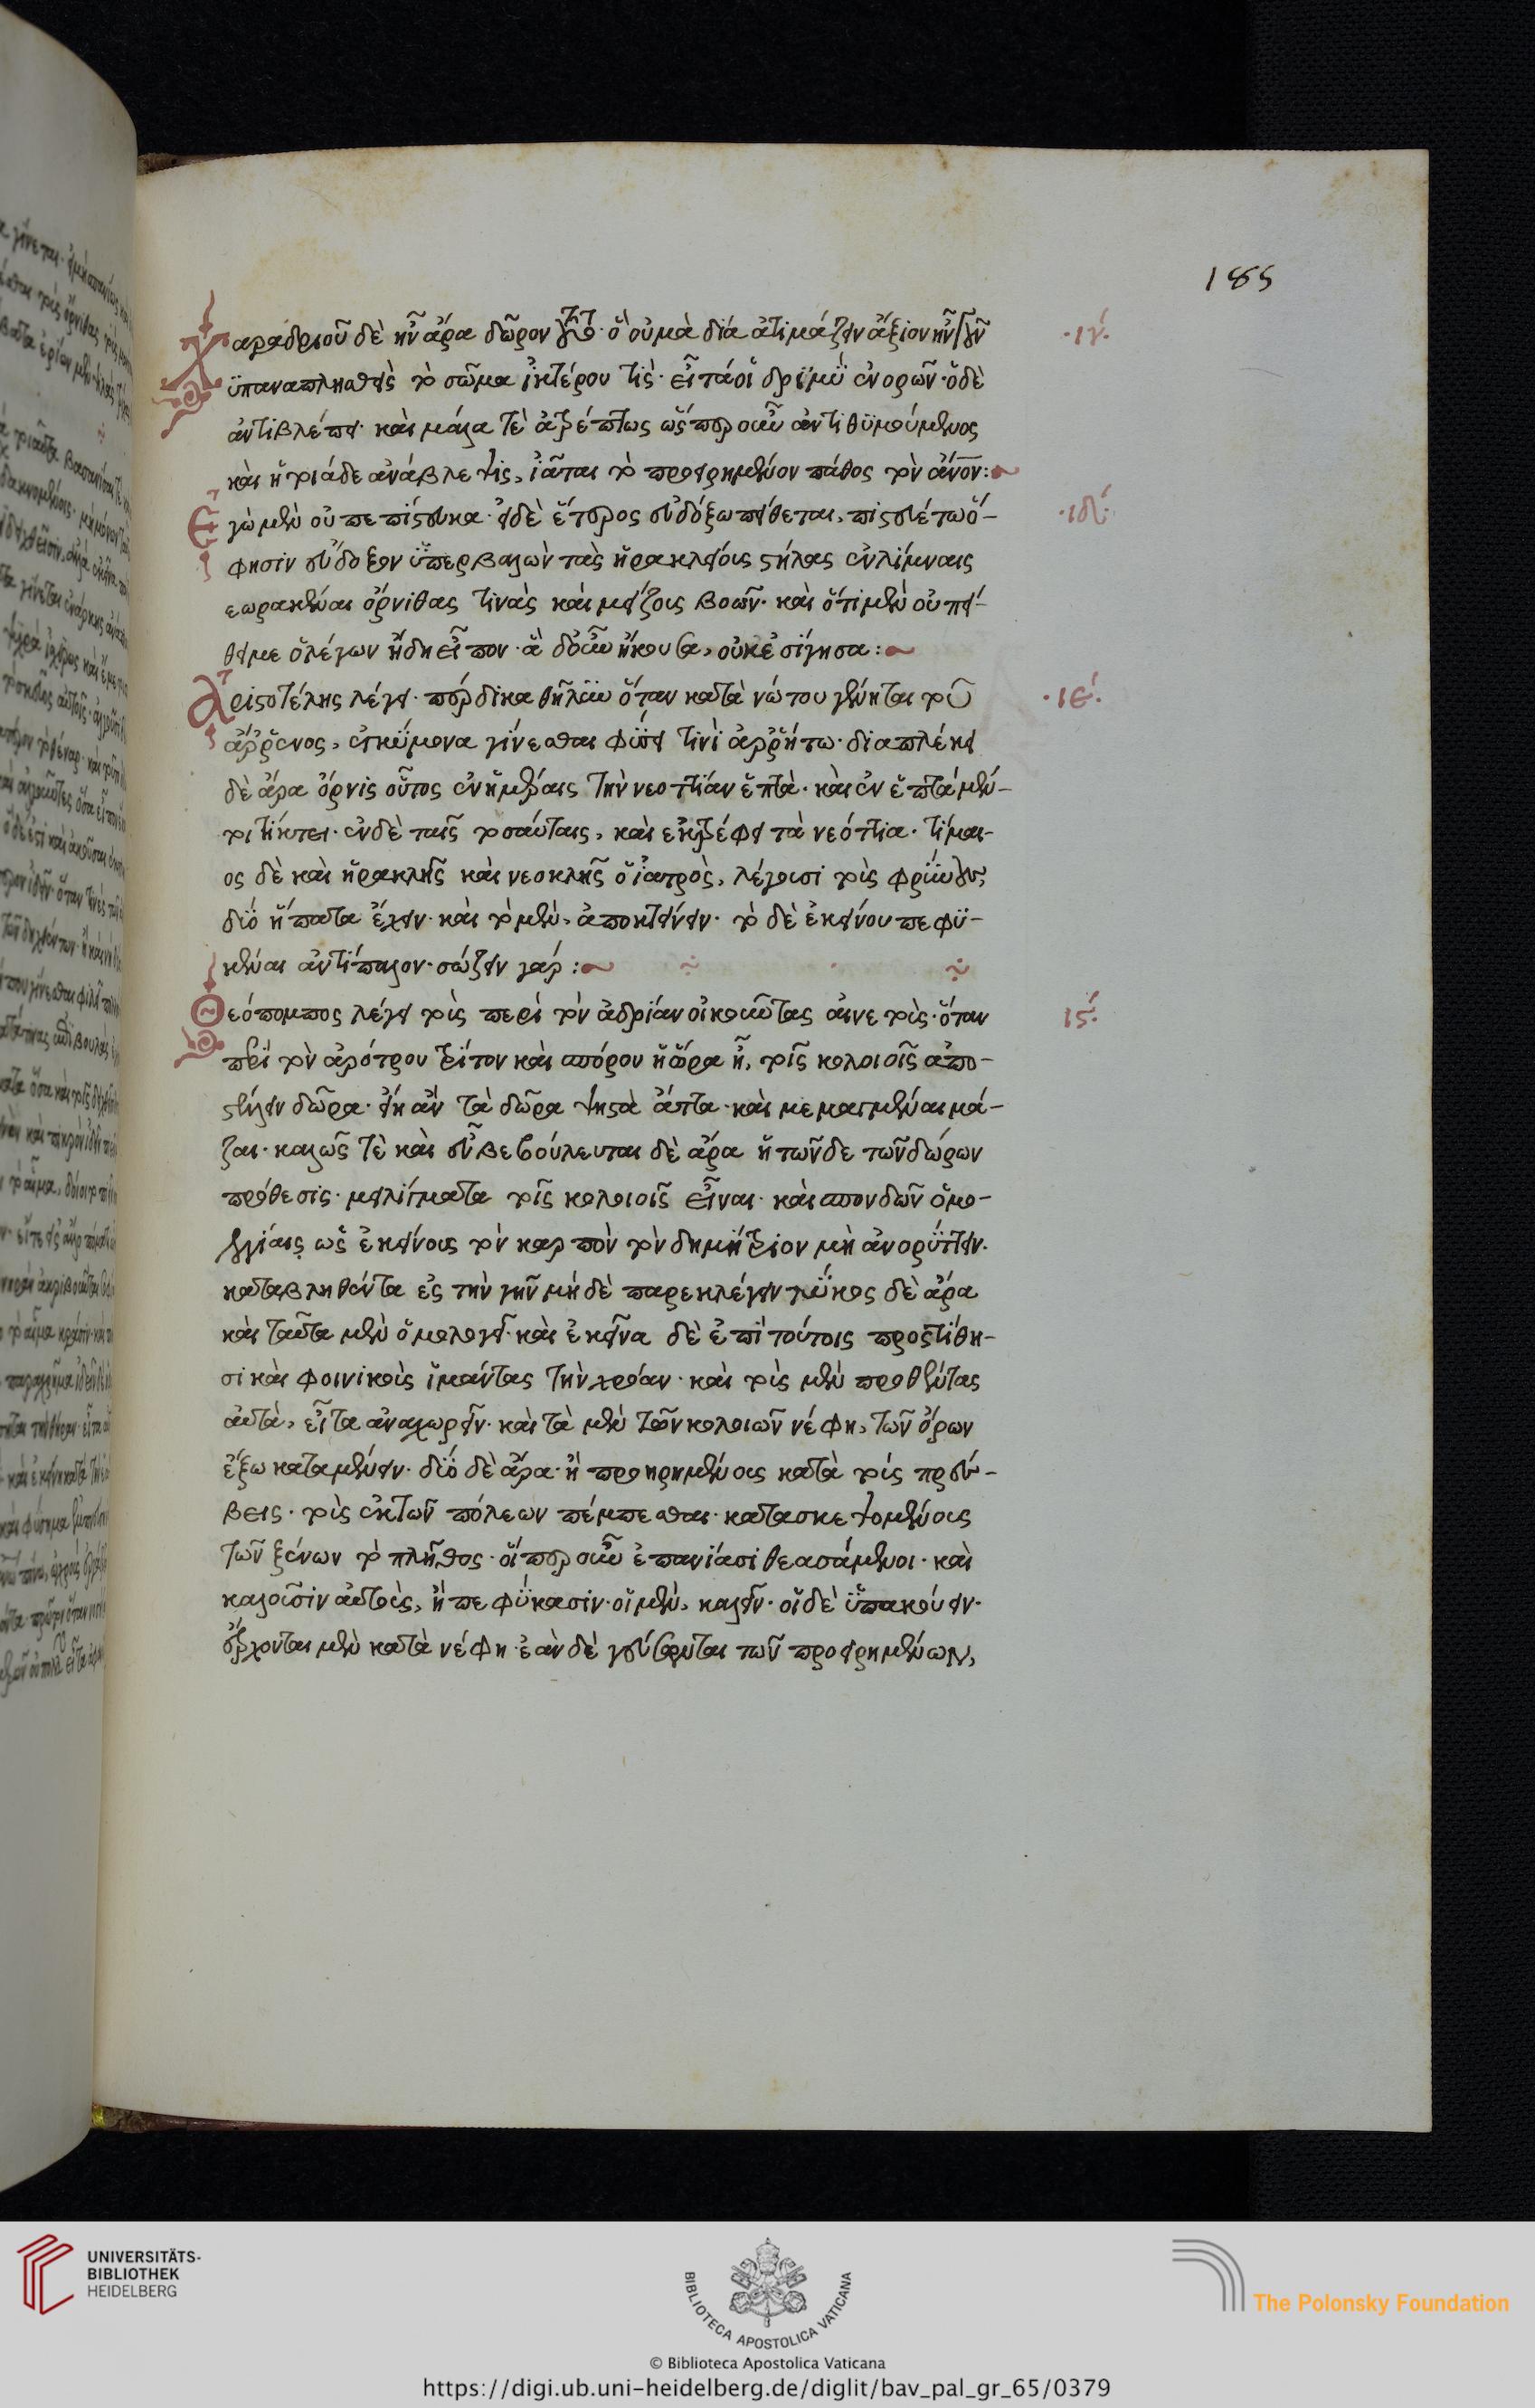 185
Χαραδριοῦ δὲ ἦν ἄρα δῶρον τοῦτο· ὃ οὐ μὰ δία ἀτιμάζειν ἄξιον ἦν γοῦν ·ιγ΄·
ὑπαναπλησθεὶς τὸ σῶμα ἰκτέρου τίς· εἶτά οἱ δριμὺ ἐνορῶν· ὁ δὲ
ἀντιβλέπει· καὶ μάλα τὲ ἀτρέπτως ὥσπερ οὖν ἀντιθυμούμενος
καὶ ἡ τοιάδε ἀνάβλεψις, ἰᾶται τὸ προειρημένον πάθος τὸν ἄνον:
Ἐγὼ μὲν οὐ πεπίστευκα· εἰ δὲ ἕτερος εὐδόξω πείθεται, πιστευέτω ὅ- ·ιδ΄·
φησιν εὔδοξον ὑπερβαλὼν τὰς ἡρακλείους στήλας ἐν λίμναις
ἑωρακέναι ὄρνιθας τινὰς καὶ μείζους βοῶν· καὶ ὅτι μὲν οὐ πεί-
θει με ὁ λέγων ἤδη εἶπον· ἃ δ' οὖν ἤκουσα, οὐκ ἐσίγησα:
Ἀριστοτέλης λέγει· πέρδικα θήλειαν ὅταν κατὰ νώτου γένηται τοῦ ·ιε΄·
ἄῤῥενος, ἐγκύμονα γίνεσθαι φύσει τινὶ ἀῤῥήτω· διαπλέκει
δὲ ἄρα ὄρνις οὗτος ἐν ἡμέραις τὴν νεοττίαν ἑπτά· καὶ ἐν ἑπτὰ μέν-
τοι τίκτει· ἐν δὲ ταῖς τοσαύταις, καὶ ἐκτρέφει τὰ νεόττια· τίμαι-
ος δὲ καὶ ἡρακλῆς καὶ νεοκλῆς ὁ ἰατρὸς, λέγουσι τοὺς φρύνους
δύο ἥπατα ἔχειν· καὶ τὸ μὲν, ἀποκτείνειν· τὸ δὲ ἐκείνου πεφυ-
κέναι ἀντίπαλον· σώζειν γάρ:
Θεόπομπος λέγει τοὺς περὶ τὸν ἀδρίαν οἰκοῦντας ἐνετοὺς· ὅταν ις΄·
περὶ τὸν ἀρότρου τρίτον καὶ σπόρου ἡ ὥρα ἦ, τοῖς κολοιοῖς ἀπο-
στέλλειν δῶρα· εἴη ἂν τὰ δῶρα ψηστὰ ἄττα· καὶ μεμαγμέναι μά-
ζαι· καλῶς τὲ καὶ εὖ βεβούλευται δὲ ἄρα ἡ τῶνδε τῶν δώρων
πρόθεσις· μειλίγματα τοῖς κολοιοῖς εἶναι· καὶ σπονδῶν ὁμο-
λογίαις ὡς ἐκείνους τὸν καρπὸν τὸν δημήτριον μὴ ἀνορύττειν·
καταβληθέντα ἐς τὴν γῆν μήδὲ παρεκλέγειν λύκος δὲ ἄρα
καὶ ταῦτα μὲν ὁμολογεῖ· καὶ ἐκεῖνα δὲ ἐπὶ τούτοις προστίθη-
σι καὶ φοινικοὺς ἱμάντας τὴν χρόαν· καὶ τοὺς μὲν προθέντας
αὐτὰ, εἶτα ἀναχωρεῖν· καὶ τὰ μὲν τῶν κολοιῶν νέφη, τῶν ὅρων
ἔξω καταμένειν· δύο δὲ ἄρα· ἢ προηρημένους κατὰ τοὺς πρέσ-
βεις· τοὺς ἐκ τῶν πόλεων πέμπεσθαι· κατασκεψομένους
τῶν ξένων τὸ πλῆθος· οἵπερ οὖν ἐπανίασι θεασάμενοι· καὶ
καλοῦσιν αὐτοὺς, ἧ πεφύκασιν· οἱ μὲν, καλεῖν· οἱ δὲ ὑπακούειν·
ἔρχονται μὲν κατὰ νέφη· ἐὰν δὲ γεύσωνται τῶν προειρημένων,
UNIVERSITÄTS-
BIBLIOTHEK
HEIDELBERG
BIBLIOTECA APOSTOLICA VATICANA
The Polonsky Foundation
© Biblioteca Apostolica Vaticana
https://digi.ub.uni-heidelberg.de/diglit/bav_pal_gr_65/0379